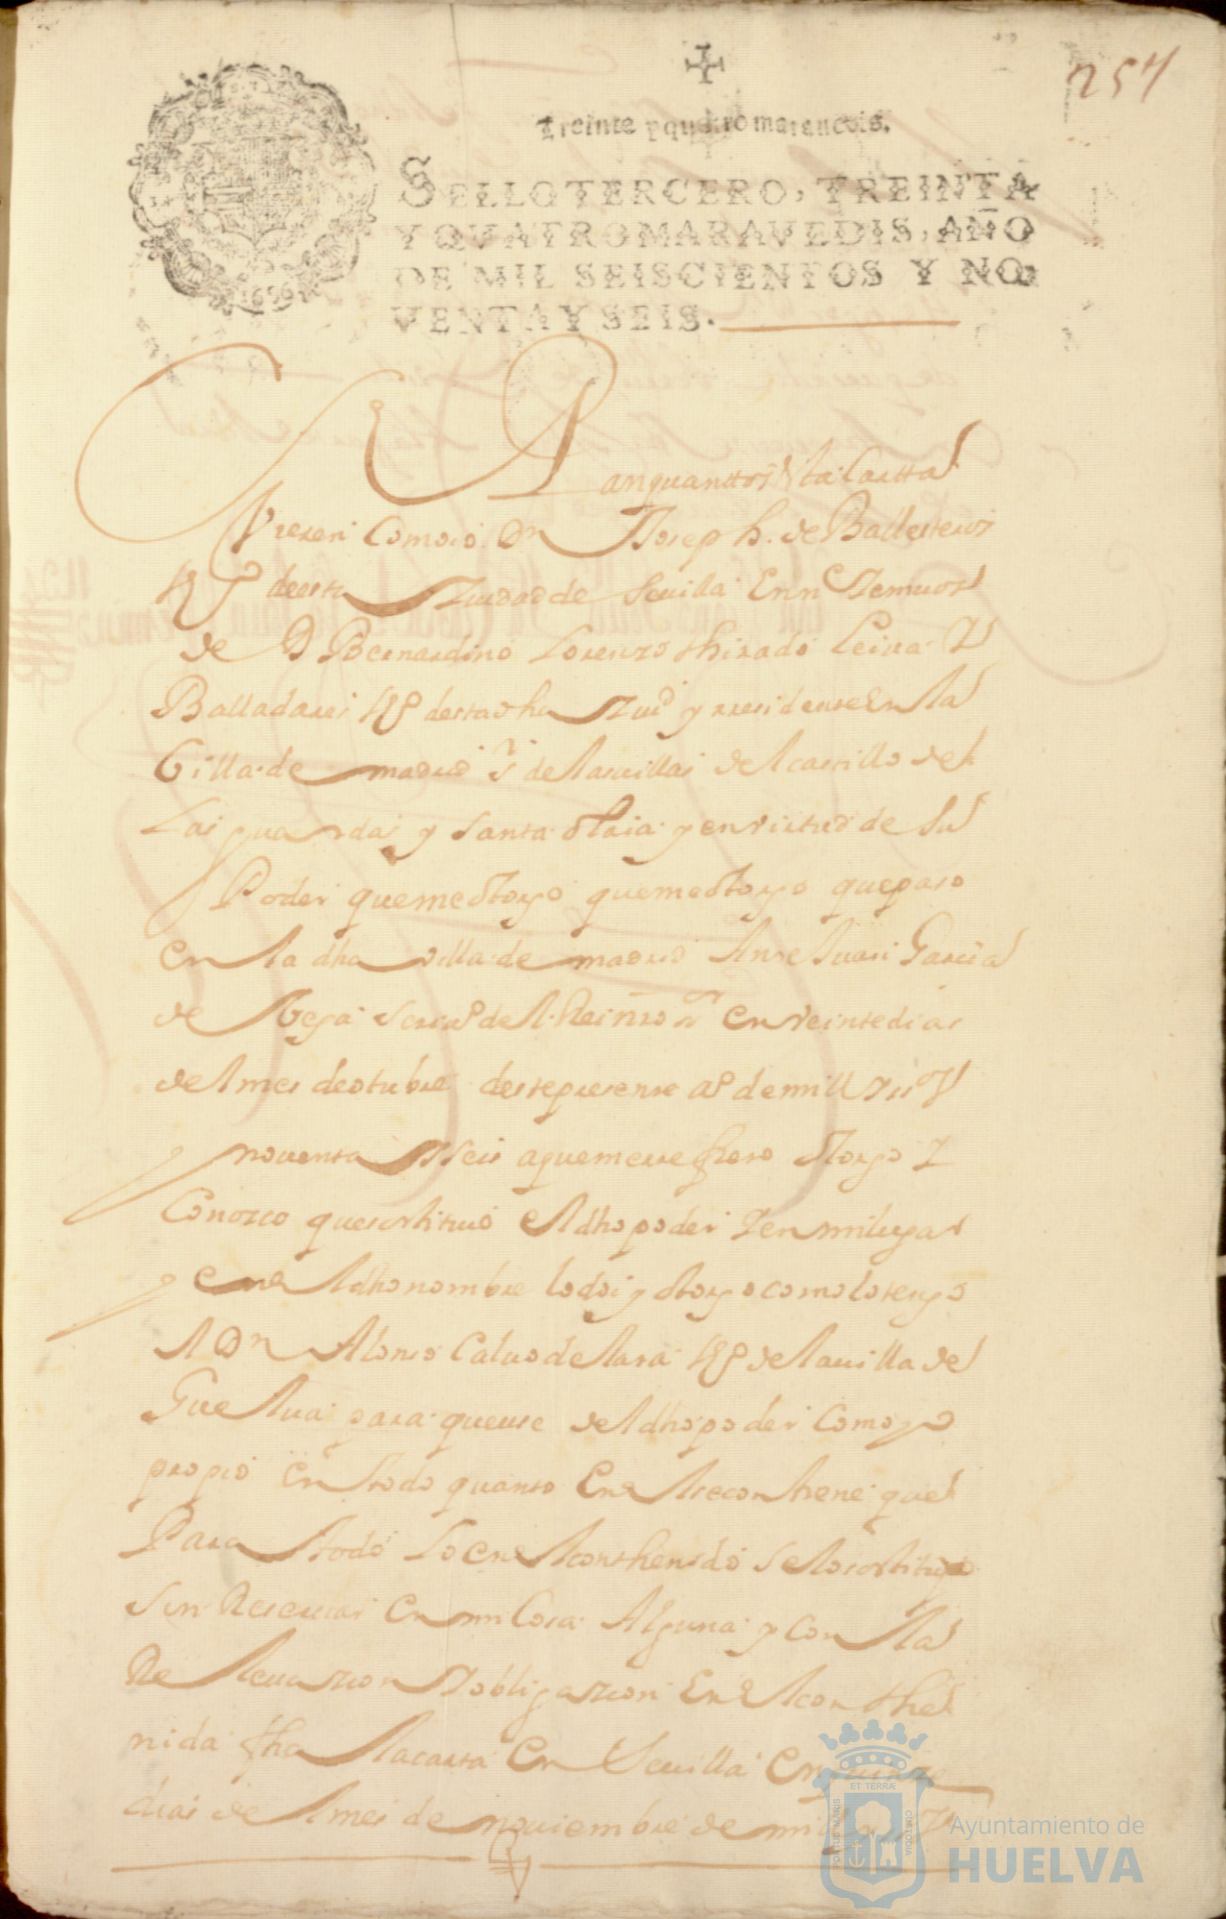 257
Treinte y quatro maraueois.
SELLO TERCERO, TREINTA
Y QVATRO MARAVEDIS, AÑO
DE MIL SEISCIENTOS Y NO
VENTA Y SEIS.
1696
an quanttos la Cartta
Vieren Como io Dn Joseph de Ballesteros
desta Ziudad de Seuilla En
de D Bernardino Lorenzo thirado Leiua Y
Balladares destadha Ziud y residente En la
Villa de madrid de las uillas del castillo de
Las guardas y santa olaia y en virtud de su
Poder que me otorgo que me otorgo que paso
en la dha villa de madrid Ante Juan Garcia
de Vega scriuo del Reino en veinte dias
del mes de otubre deste presente aº de mill
y nouenta y seis a que me refiero otorgo Y
Conozco que sostituio el dho poder Y en mi lugar
y en el dho nombre lo doi y otorgo como lo tengo
A Dn Alonso Caluo de lara de la uilla de
Guelua para que use del dho poder Como yo
propio en todo quanto En el se conthene que
Para todo Lo en el conthenido se lo sostituyo
sin Reseruar en mi Cosa Alguna y con la
Releuazion y obligazion En el conthe
nida fha la carta en Seuilla en
dias del mes de nouiembre de mill
ET TERRÆ
PORTUS MARIS
CUSTODIA
Ayuntamiento de
HUELVA